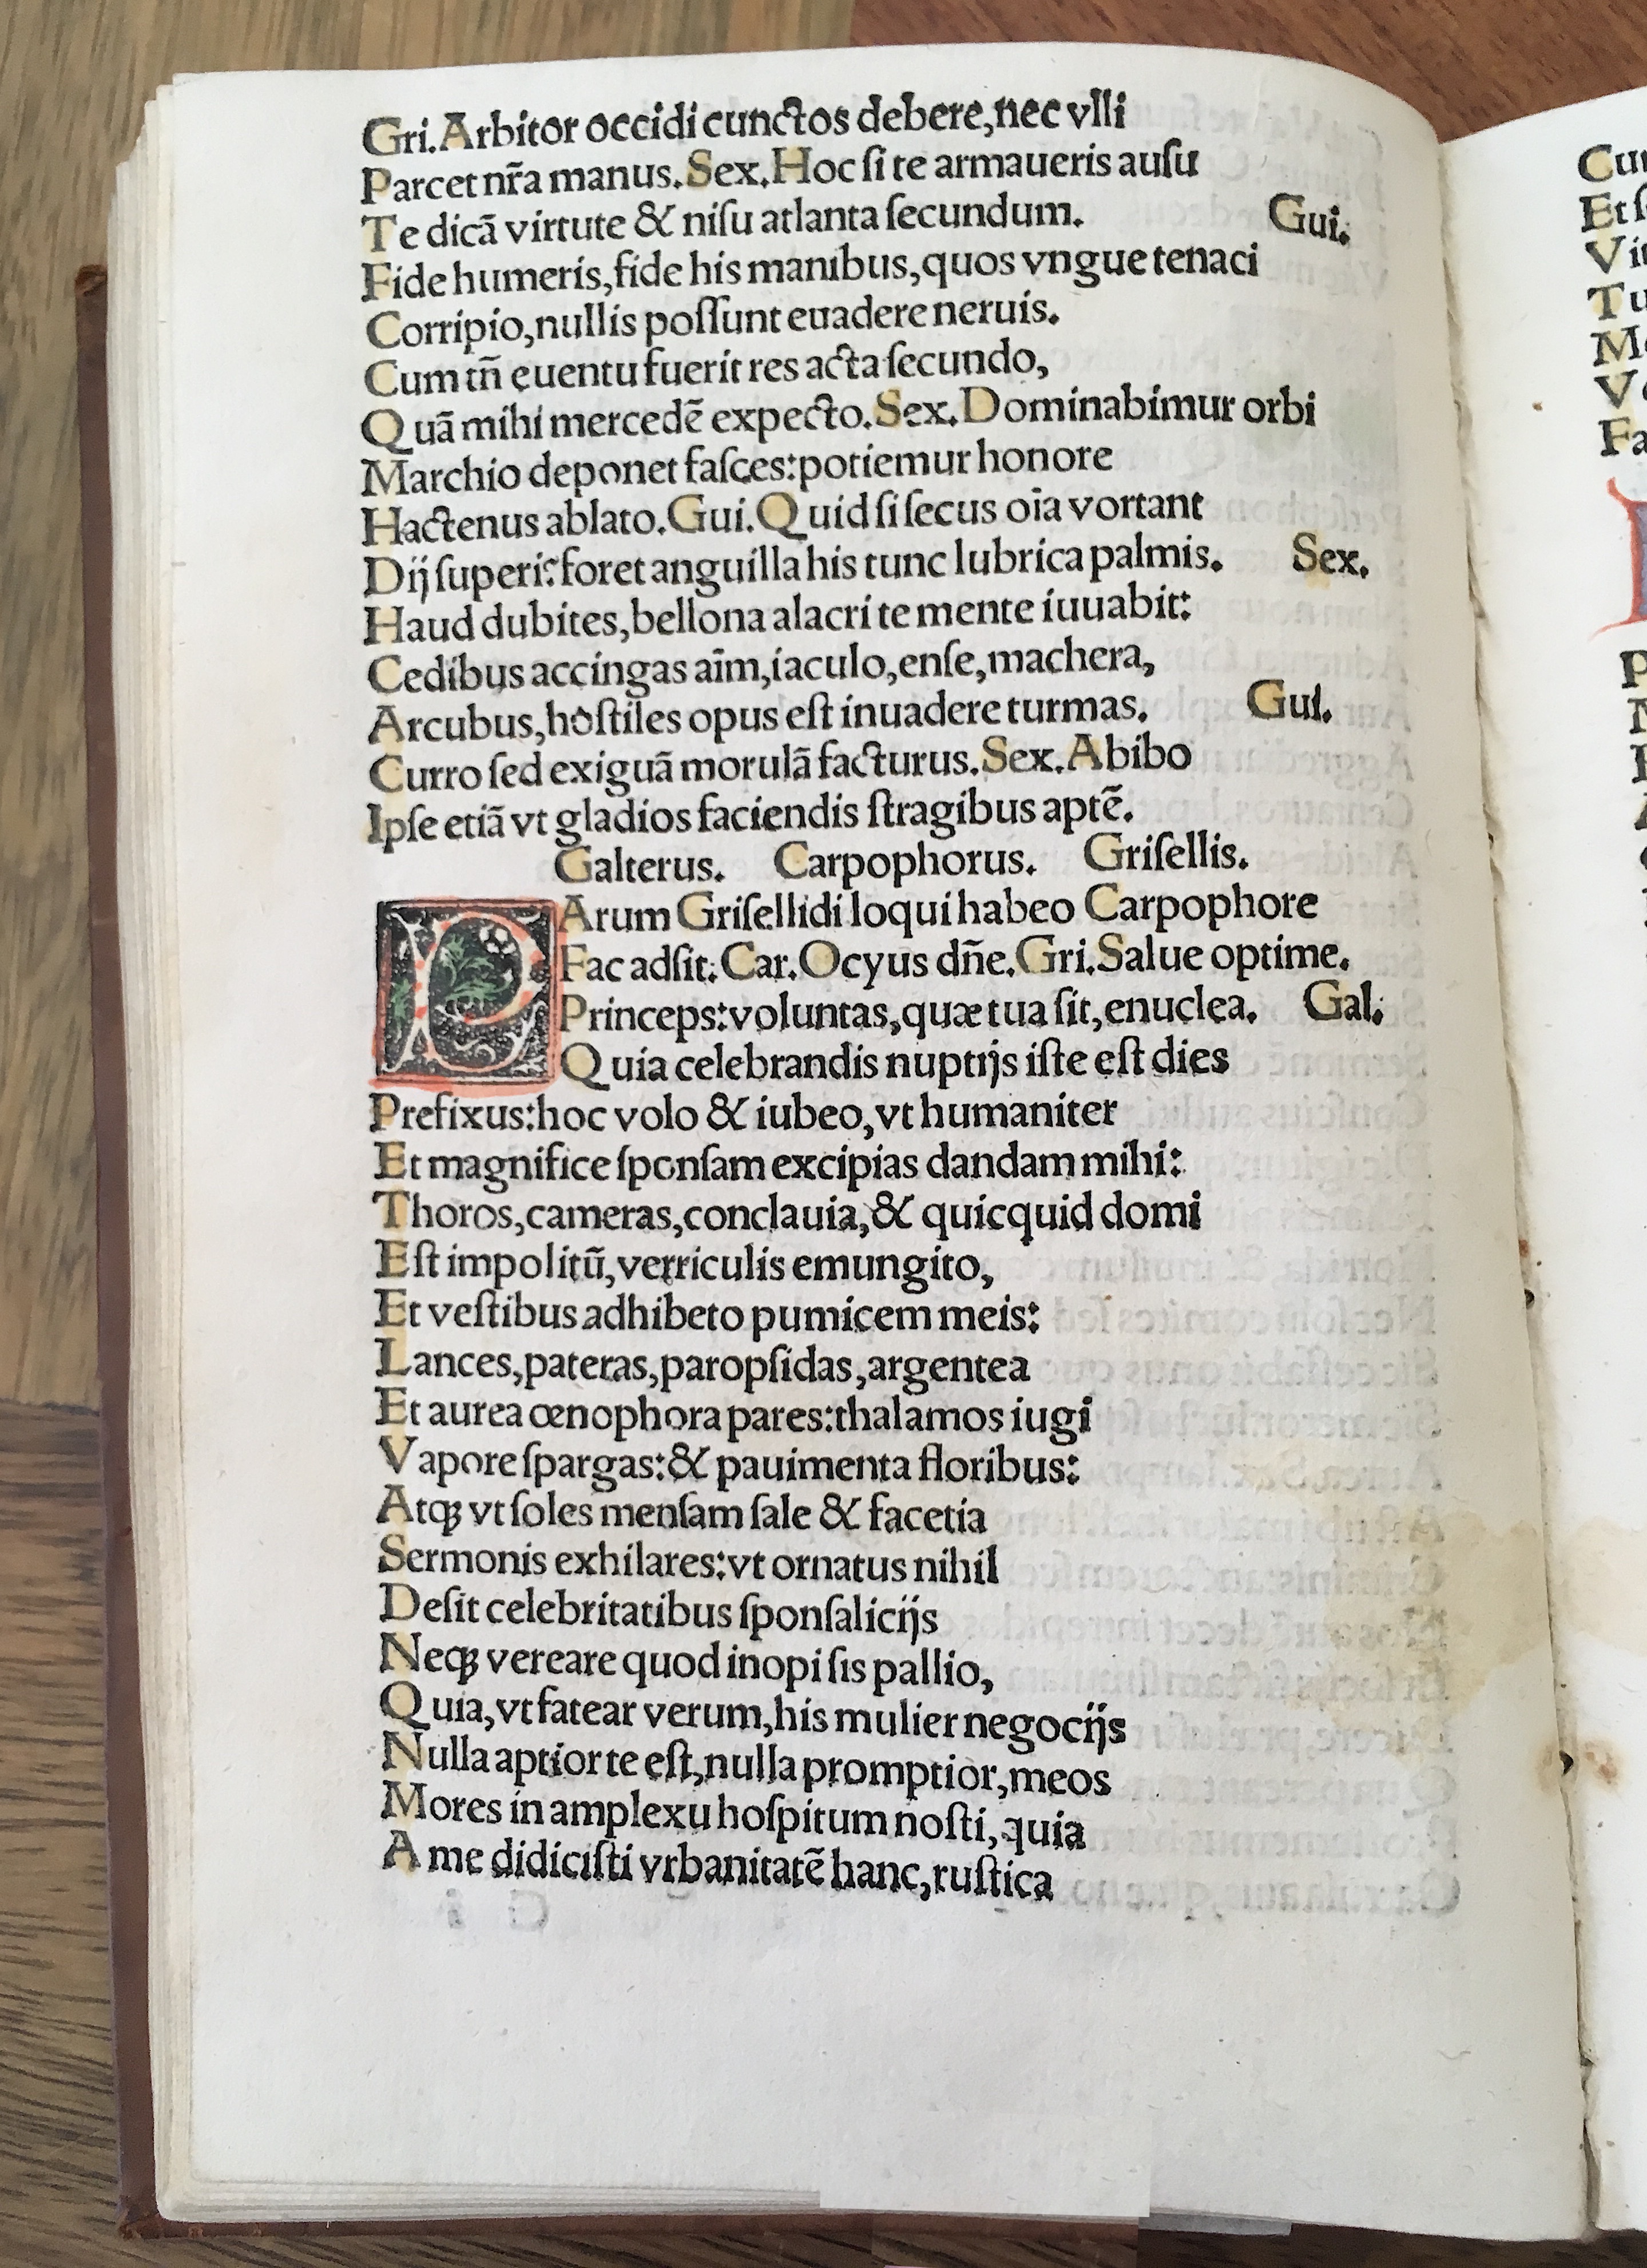 Gri. Arbitor occidi cunctos debere, nec vlli
Parcet nr̃a manus. Sex. Hoc ſi te armaueris auſu
Te dicã virtute & niſu atlanta ſecundum. Gui.
Fide humeris, fide his manibus, quos vngue tenaci
Corripio, nullis poſſunt euadere neruis.
Cum tñ euentu fuerit res acta ſecundo,
Quã mihi mercedẽ expecto. Sex. Dominabimur orbi
Marchio deponet faſces: potiemur honore
Hactenus ablato. Gui. Quid ſi ſecus oĩa vortant
Dij ſuperi: foret anguilla his tunc lubrica palmis. Sex.
Haud dubites, bellona alacri te mente iuuabit:
Cedibus accingas aĩm, iaculo, enſe, machera,
Arcubus, hoſtiles opus eſt inuadere turmas. Gui.
Curro ſed exiguã morulã facturus. Sex. Abibo
Ipſe etiã vt gladios faciendis ſtragibus aptẽ.
Galterus. Carpophorus. Griſellis.
PArum Griſellidi loqui habeo Carpophore
Fac adſit. Car. Ocyus dñe. Gri. Salue optime.
Princeps: voluntas, quæ tua ſit, enuclea. Gal.
Quia celebrandis nuptijs iſte eſt dies
Prefixus: hoc volo & iubeo, vt humaniter
Et magnifice ſponſam excipias dandam mihi:
Thoros, cameras, conclauia, & quicquid domi
Eſt impolitũ, verriculis emungito,
Et veſtibus adhibeto pumicem meis:
Lances, pateras, paropſidas, argentea
Et aurea œnophora pares: thalamos iugi
Vapore ſpargas: & pauimenta floribus:
Atqꝫ vt ſoles menſam ſale & facetia
Sermonis exhilares: vt ornatus nihil
Deſit celebritatibus ſponſalicijs
Neqꝫ vereare quod inopi ſis pallio,
Quia, vt fatear verum, his mulier negocijs
Nulla aptior te eſt, nulla promptior, meos
Mores in amplexu hoſpitum noſti, quia
A me didiciſti vrbanitatẽ hanc, ruſtica
Cur
Et ſ
Vit
Tu
Mo
Ve
Fa